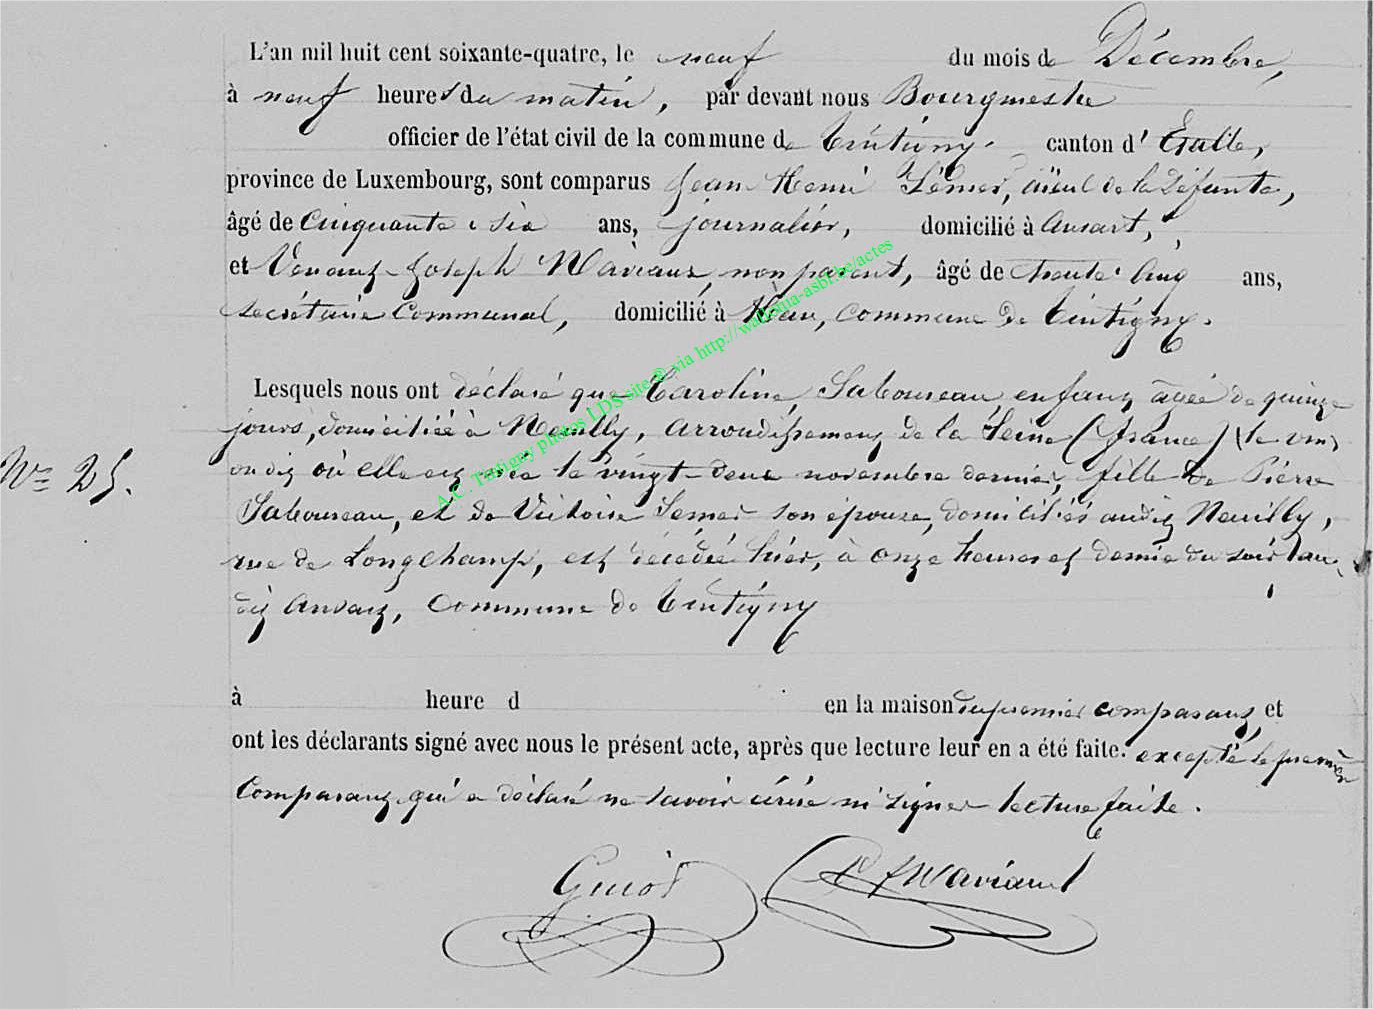 L'an mil huit cent soixante-quatre, le neuf du mois de Décembre,
à neuf heures du matin, par devant nous Bourgmestre
officier de l'état civil de la commune de Tintigny canton d'Etalle,
province de Luxembourg, sont comparus Jean Henri Lémer, aïeul de la défunte,
âgé de Cinquante six ans, journalier, domicilié à Ansart,
et Venant Joseph Maviaux, non parent, âgé de trente cinq ans,
secrétaire Communal, domicilié à Han, commune de Tintigny.
Lesquels nous ont déclaré que Caroline Saboureau enfant âgée de quinze
jours, domiciliée à Neuilly, arrondissement de la Seine (france)
où elle est née le vingt-deux novembre dernier, fille de Pierre
Saboureau, et de Victoire Lemer son épouse, domiciliés audit Neuilly,
rue de Longchamp, est décédée hier, à onze heures et demie du soir au
dit Ansart, Commune de Tintigny
N° 25.
à heure d en la maison du premier comparant, et
ont les déclarants signé avec nous le présent acte, après que lecture leur en a été faite. excepté le premier
Comparant qui a déclaré ne savoir écrire ni signer lecture faite.
Guiot
A.C. Tintigny photos LDS site @ via http://wallonia-asbl.be/actes